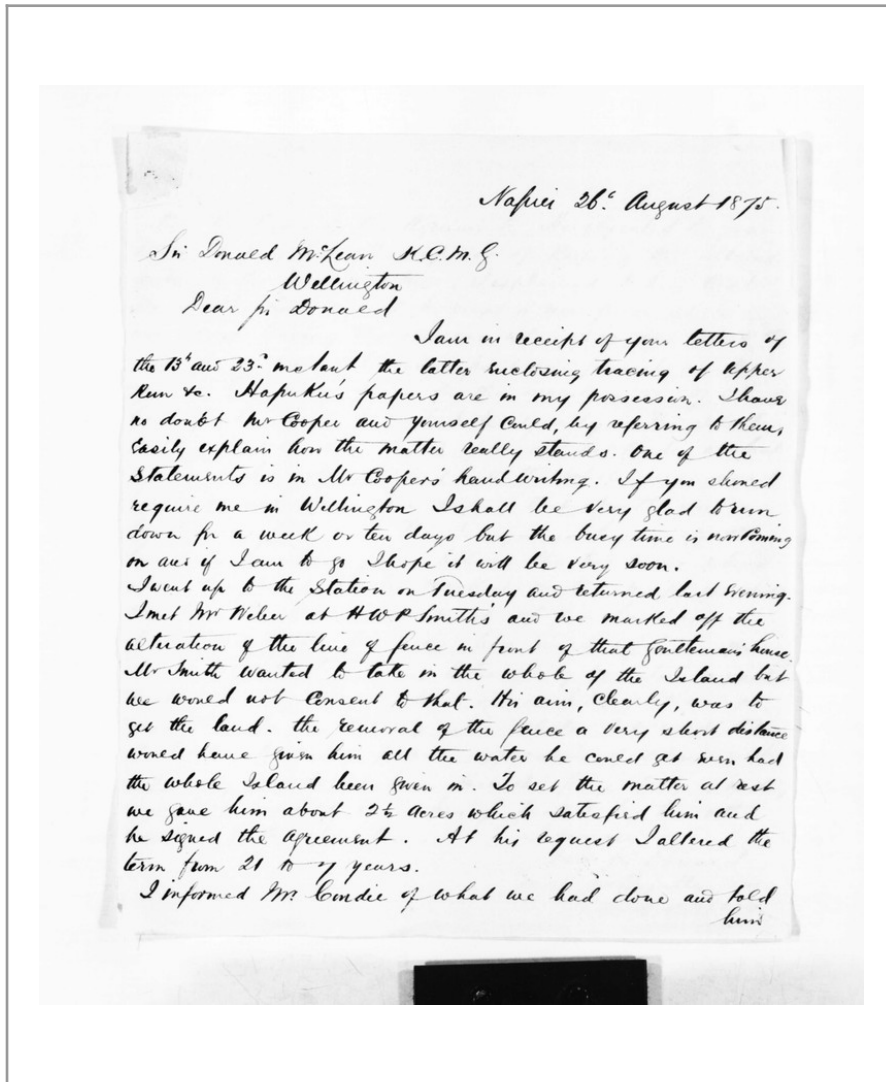 Napier 26th August 1875.
Sir Donald McLean K.C.M.G.
Wellington
Dear Sir Donald
I am in receipt of your letters of
the 13th and 23rd instant the latter enclosing tracing of Upper
Run &c. Hapuku's papers are in my possession. I have
no doubt Mr Cooper and yourself could, by referring to them,
easily explain how the matter really stands. One of the
Statements is in Mr Cooper's handwriting. If you should
require me in Wellington I shall be very glad to run
down for a week or ten days but the busy time is now coming
on and if I am to go I hope it will be very soon.
I went up to the Station on Tuesday and returned last evening.
I met Mr Weber at H W P Smith's and we marked off the
alteration of the line of fence in front of that gentleman's house.
Mr Smith wanted to take in the whole of the Island but
we would not consent to that. His aim, clearly, was to
get the land. the removal of the fence a very short distance
would have given him all the water he could get even had
the whole Island been given in. To set the matter at rest
we gave him about 2½ acres which satisfied him and
he signed the agreement. At his request I altered the
term from 21 to 7 years.
I informed Mr. Condie of what we had done and told
him